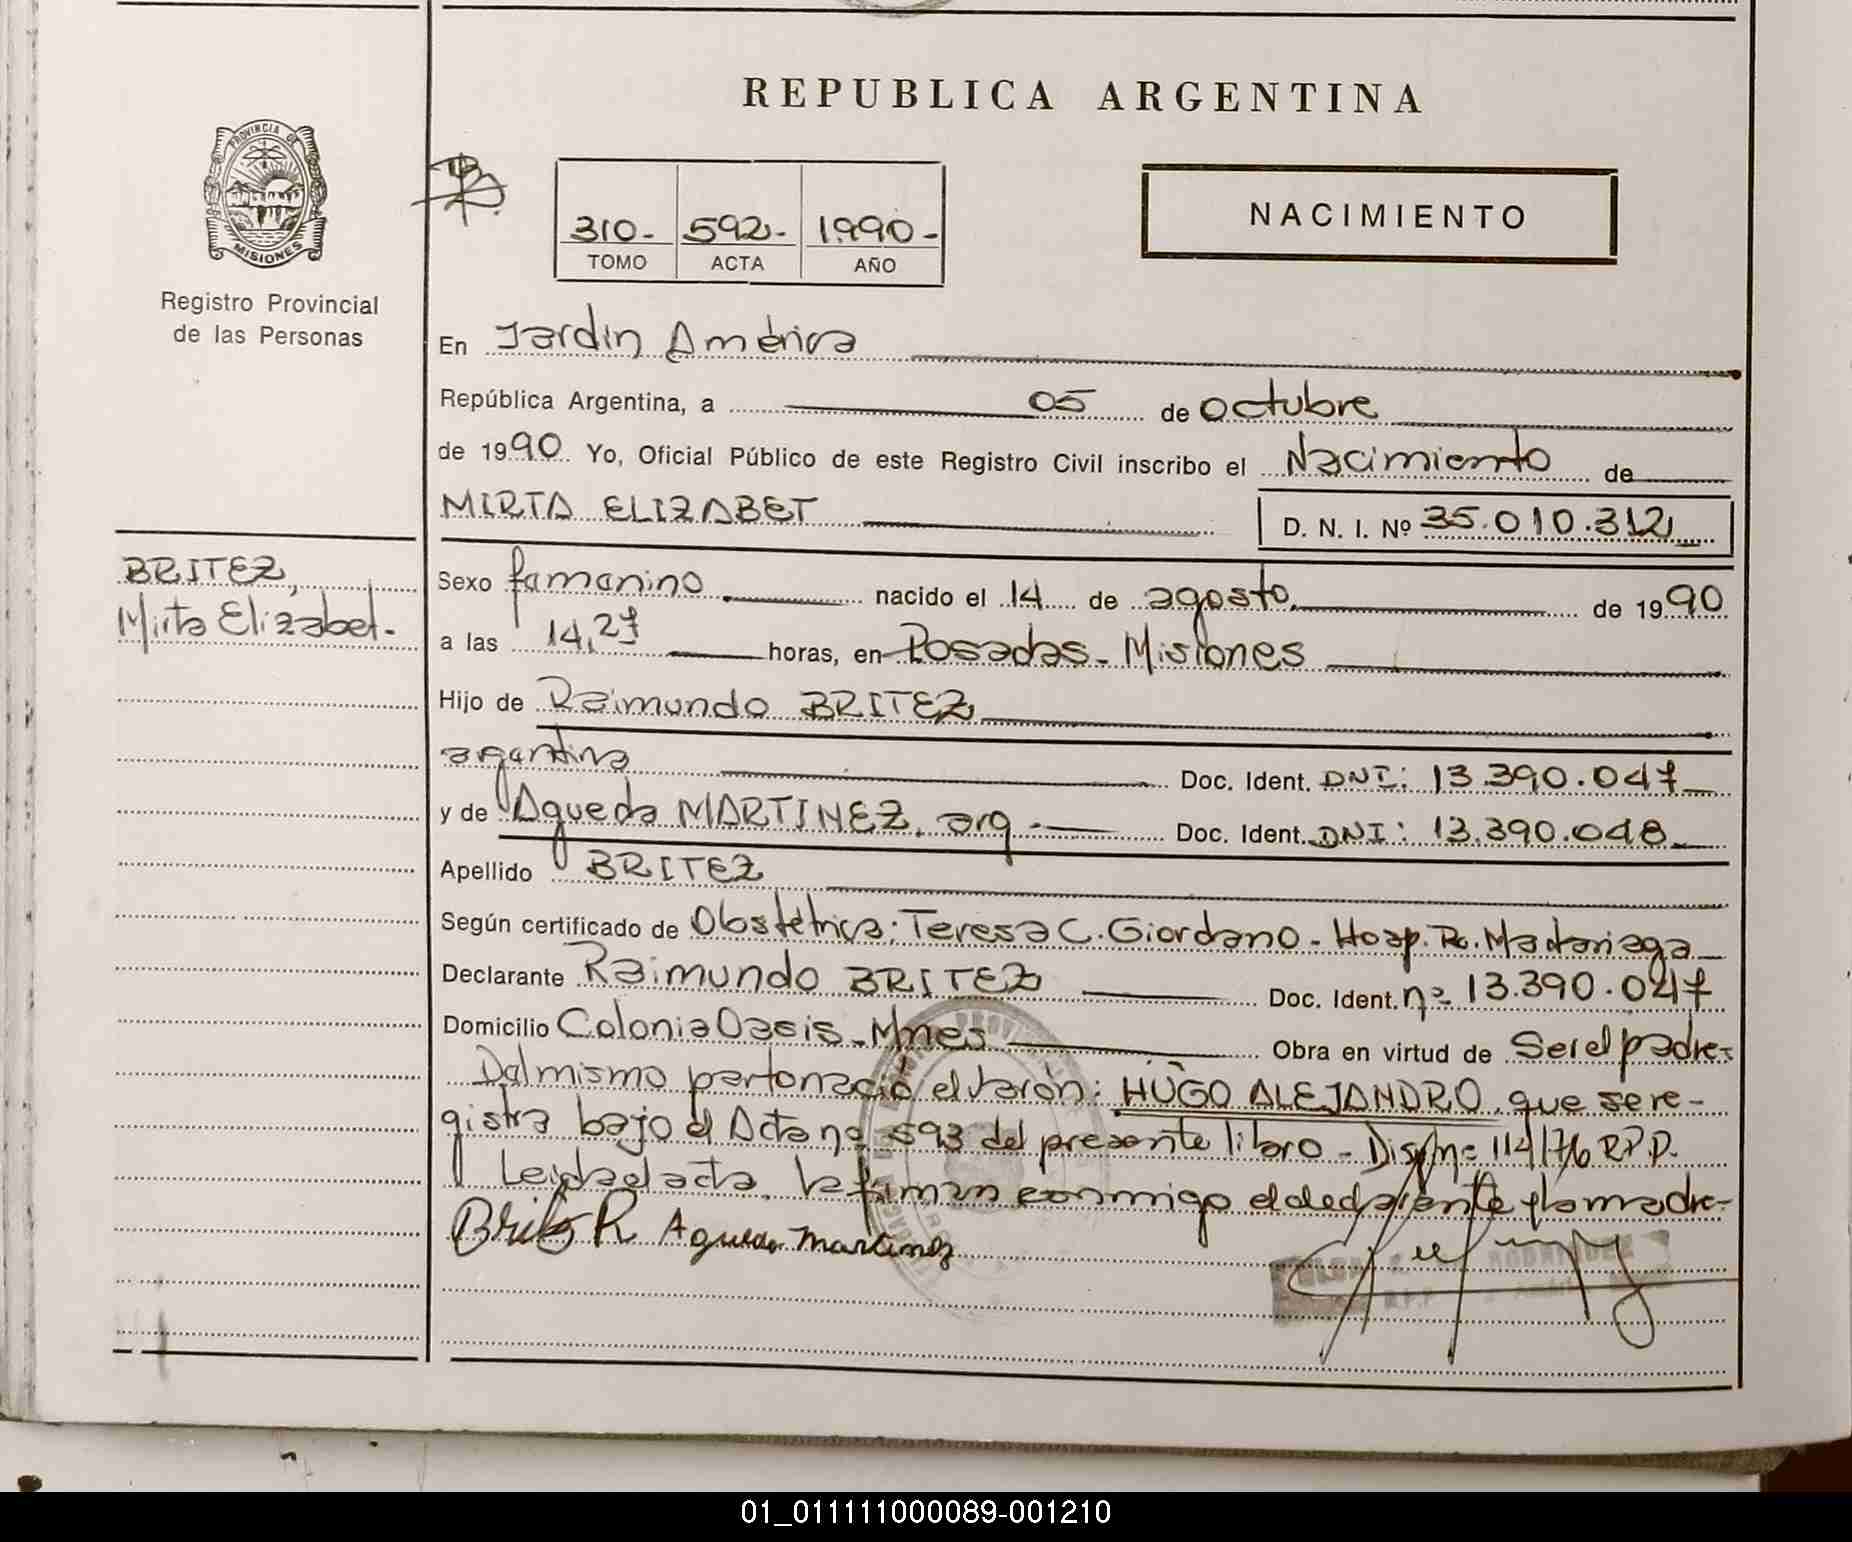 REPUBLICA ARGENTINA
PROVINCIA DE
MISIONES
Registro Provincial
de las Personas
310- 592- 1990-
TOMO ACTA AÑO
NACIMIENTO
En Jardin América
República Argentina, a 05 de Octubre
de 1990 Yo, Oficial Público de este Registro Civil inscribo el Nacimiento de
MIRTA ELIZABET D. N. I. Nº 35.010.312
BRITEZ,
Mirta Elizabet.-
Sexo famanino nacido el 14 de agosto de 1990
a las 14,27 horas, en Posadas - Misiones
Hijo de Raimundo BRITEZ
argentina Doc. Ident. DNI: 13.390.047
y de Agueda MARTINEZ, arg.- Doc. Ident. DNI: 13.390.048
Apellido BRITEZ
Según certificado de Obstétrica: Teresa C. Giordano - Hosp. R. Madariaga
Declarante Raimundo BRITEZ Doc. Ident. nº 13.390.047
Domicilio Colonia Oasis - Mnes Obra en virtud de Ser el padre-
Del mismo parto nació el varón: HUGO ALEJANDRO, que se re-
gistra bajo el Acta nº 593 del presente libro - Disp. nº 114/76 R.P.P.
Leida el acta, la firman conmigo el declarante y la madre-
Britez R Agueda martinez
RODRIGUEZ
01_011111000089-001210